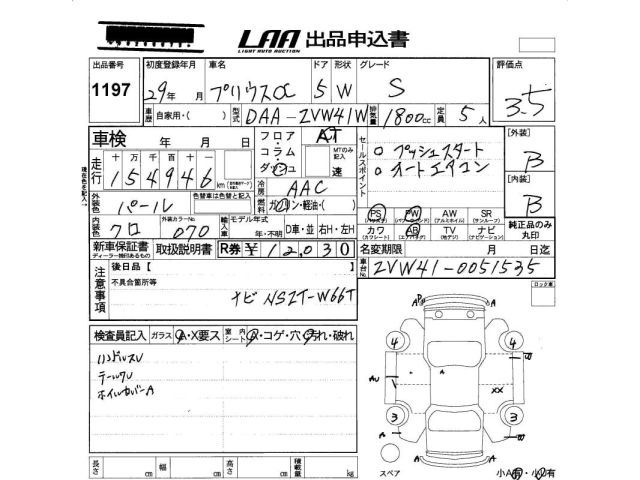 LAA 出品申込書
LIGHT AUTO AUCTION
出品番号 初度登録年月 車名 ドア 形状 グレード 評価点
1197 29年 月 プリウスα 5 W S 3.5
車歴 自家用・( ) 型式 DAA-ZVW41W 排気量 1800cc 定員 5人
車検 年 月 日
フロア・コラム・ダッシュ AT
MTのみ記入 速
セールスポイント
プッシュスタート
オートエアコン
[外装] B
[内装] B
走行 十 万 千 百 十 一
154946 km
冷房 AAC
燃料 ガソリン・軽油・( )
外装色 パール
色替車は色替と記入
現在色を記入
内装色 クロ
外装カラーNo 070
輸入車 モデル年式 年・不明 D車・並 右H・左H
PS PW AW SR
(パワステ) (パワーウインド) (アルミホイル) (サンルーフ)
カワ AB TV ナビ
(エアバッグ) (地デジ) (ナビゲーション)
純正品のみ丸印
新車保証書 取扱説明書 R券 ¥12,030
ディーラー捺印あるもの
名変期限 月 日迄
車台No ZVW41-0051535
注意事項
後日品【
不具合箇所等
ナビ NSZT-W66T
ロック車
検査員記入 ガラス A・X要ス 室内シート A・コゲ・穴・汚れ・破れ
ハンドルスレU
テールクU
ホイルカバーA
4 4
W
AU
A A
XX
3 3
W
A A
長さ cm 幅 cm 高さ cm 積載量 kg
スペア
小A有・小U有